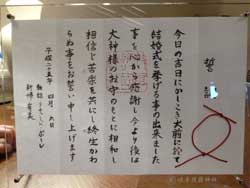 誓詞
今日の吉日にかしこき大前に於て
結婚式を挙げる事の出来ました
事を心から感謝し今より後は
大神様のお守のもとに相和し
相信じ苦楽を共にし終生かわ
らぬ事をお誓い申し上げます
平成二十五年 四月 六日